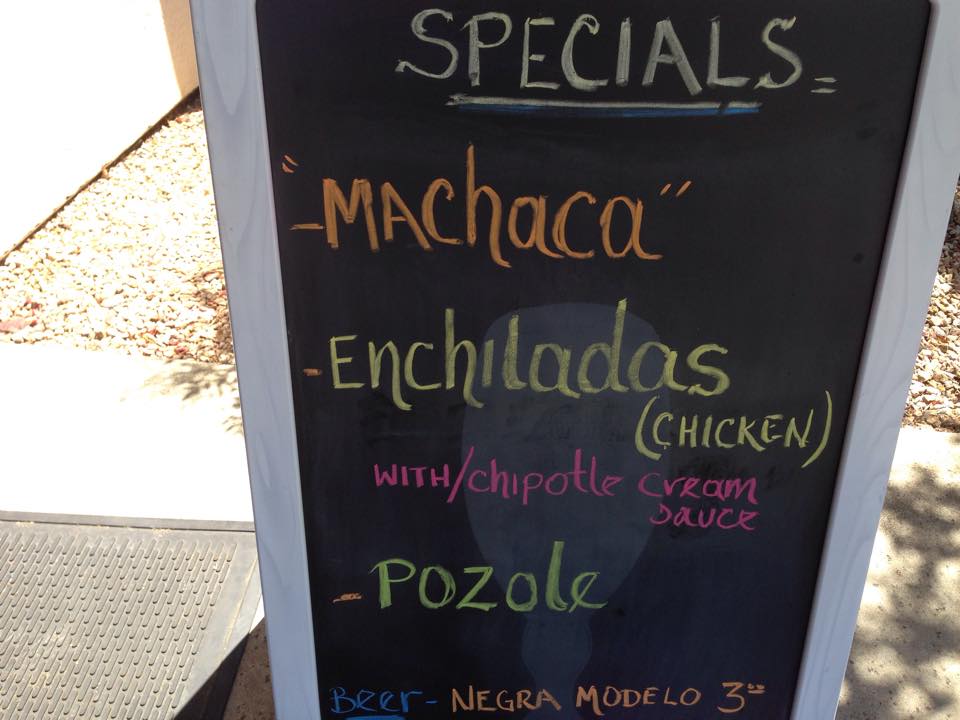 SPECIALS=
-"MAChaca"
-Enchiladas
(CHICKEN)
WITH/chipotle cream
sauce
- POZole
Beer- NEGRA MODELO 3⁰⁰